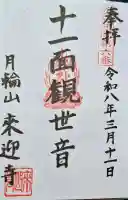 奉拝
令和八年三月十一日
十一面観世音
月輪山 来迎寺